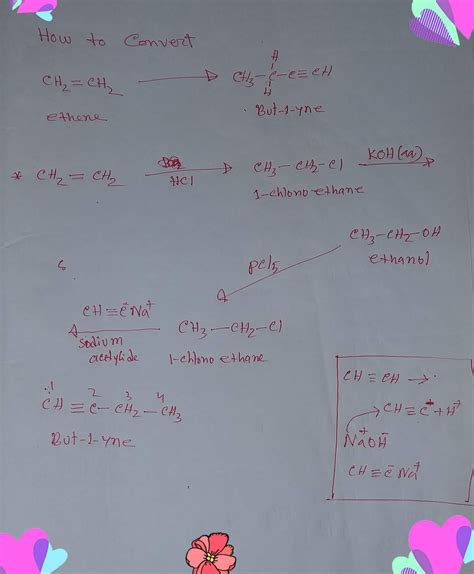 How to Convert
CH₂=CH₂ → CH₃-C-C≡CH
H
H
ethene
But-1-yne
* CH₂=CH₂ → CH₃-CH₂-Cl
HCl
KOH(aq)
1-chloro ethane
CH₃-CH₂-OH
ethanol
PCl₅
CH≡C̄Na⁺
CH₃-CH₂-Cl
sodium
acetylide
1-chloro ethane
1 2 3 4
CH≡C-CH₂-CH₃
But-1-yne
CH≡CH →
CH≡C + H⁺
NaOH
CH≡C̄Na⁺